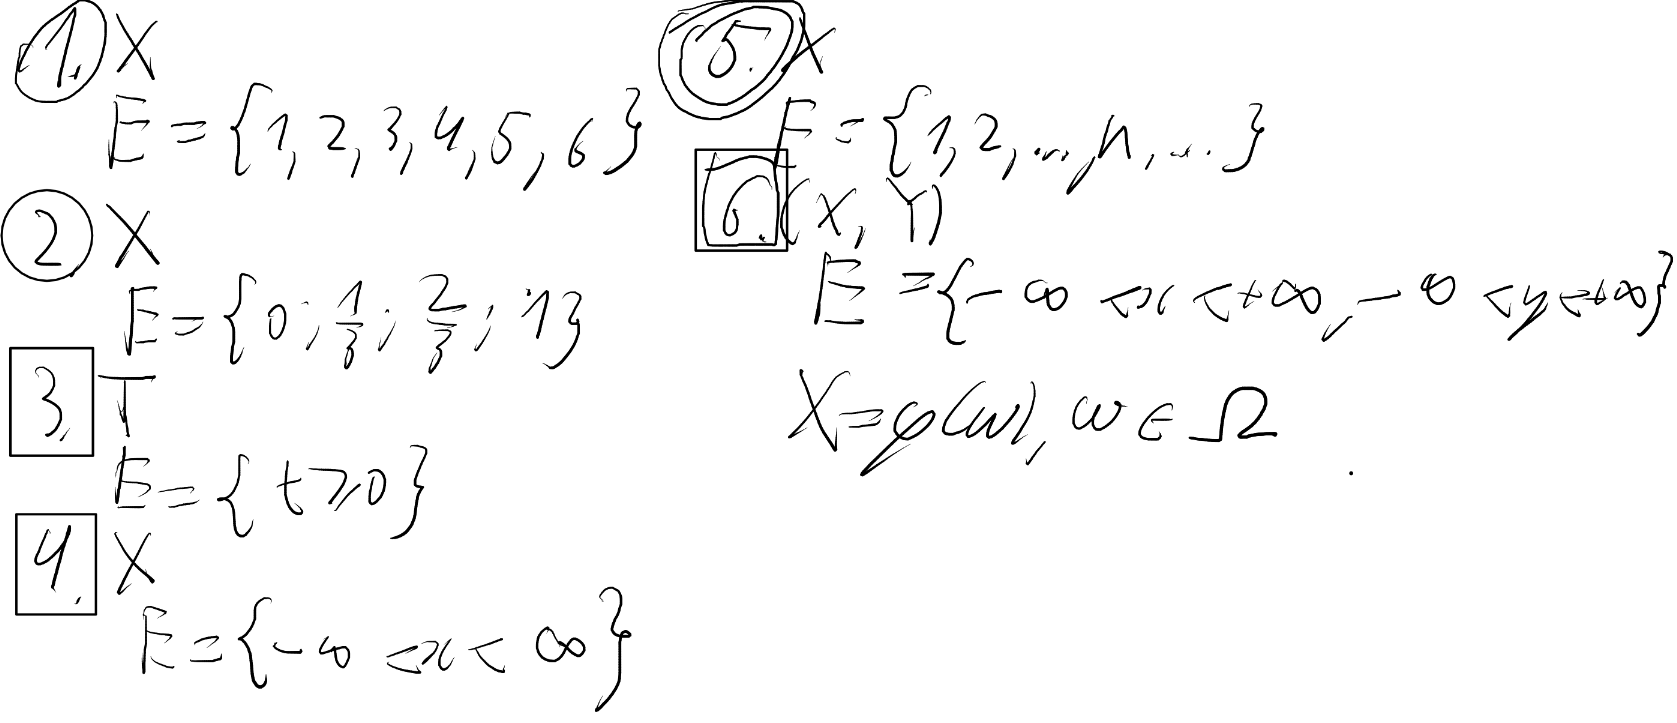 1. X
E = {1, 2, 3, 4, 5, 6}
2 X
E = {0; 1/3; 2/3; 1}
3. T
E = {t ⩾ 0}
4. X
E = {-∞ < x < ∞}
5. X
E = {1, 2, ..., n, ...}
6. (X, Y)
E = {-∞ < x < +∞, -∞ < y < +∞}
X = φ(ω), ω ∈ Ω